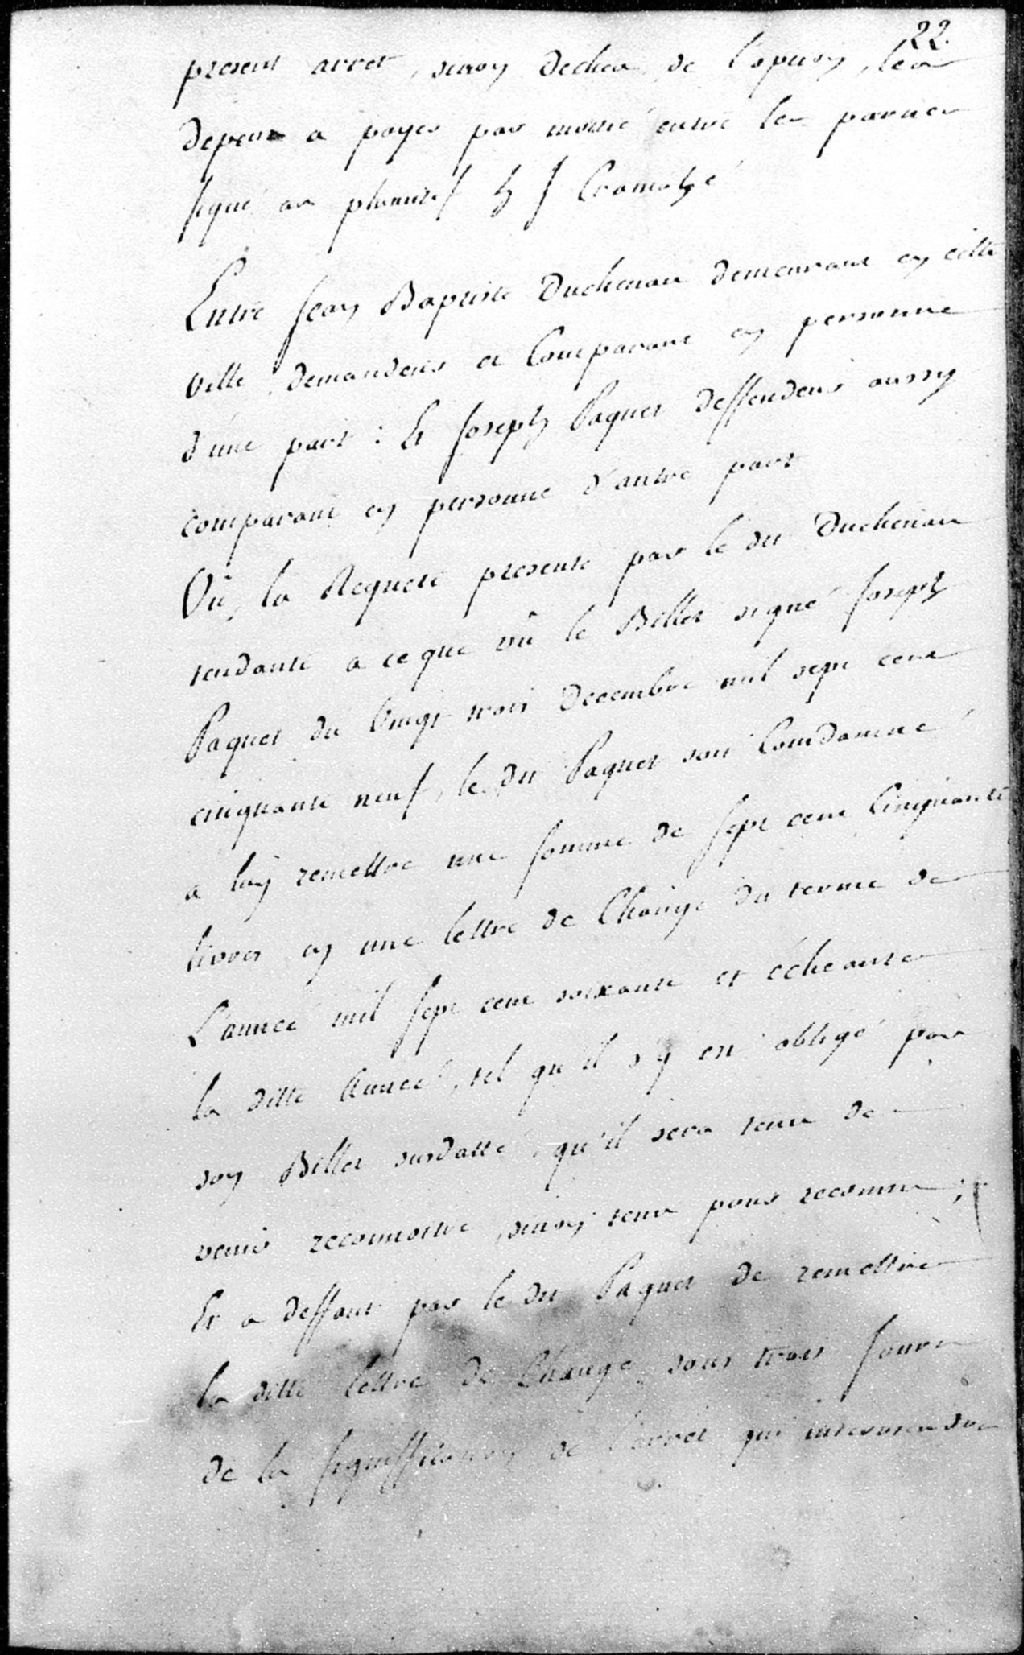 22.
present arret, sinon dechu de l'apoin, les
depens a payer par moitié entre les parties
signé au plumitif h J Cramahé
Entre Jean Baptiste Duchenau demeurant en cette
Ville, demandeur et Comparant en personne
d'une part : Et Joseph Paquet deffendeur aussy
comparant en personne d'autre part
Vu, la Requete presenté par le dit Duchenau
tendante a ce que vû le Billet signé Joseph
Paquet du Vingt trois Decembre mil sept cent
cinquante neuf, le dit Paquet soit Condamné
a luy remettre une somme de sept cent Cinquante
livres en une lettre de Change du terme de
L'année mil sept cent soixante et échéante
la ditte Année, tel qu'il s'y est obligé par
son Billet susdatté, qu'il sera tenu de
venir reconnoitre, sinon tenu pour reconnu ;
Et a deffaut par le dit Paquet de remettre
la ditte lettre de Change, dans trois Jours
de la signiffication de l'arret qui interviendra